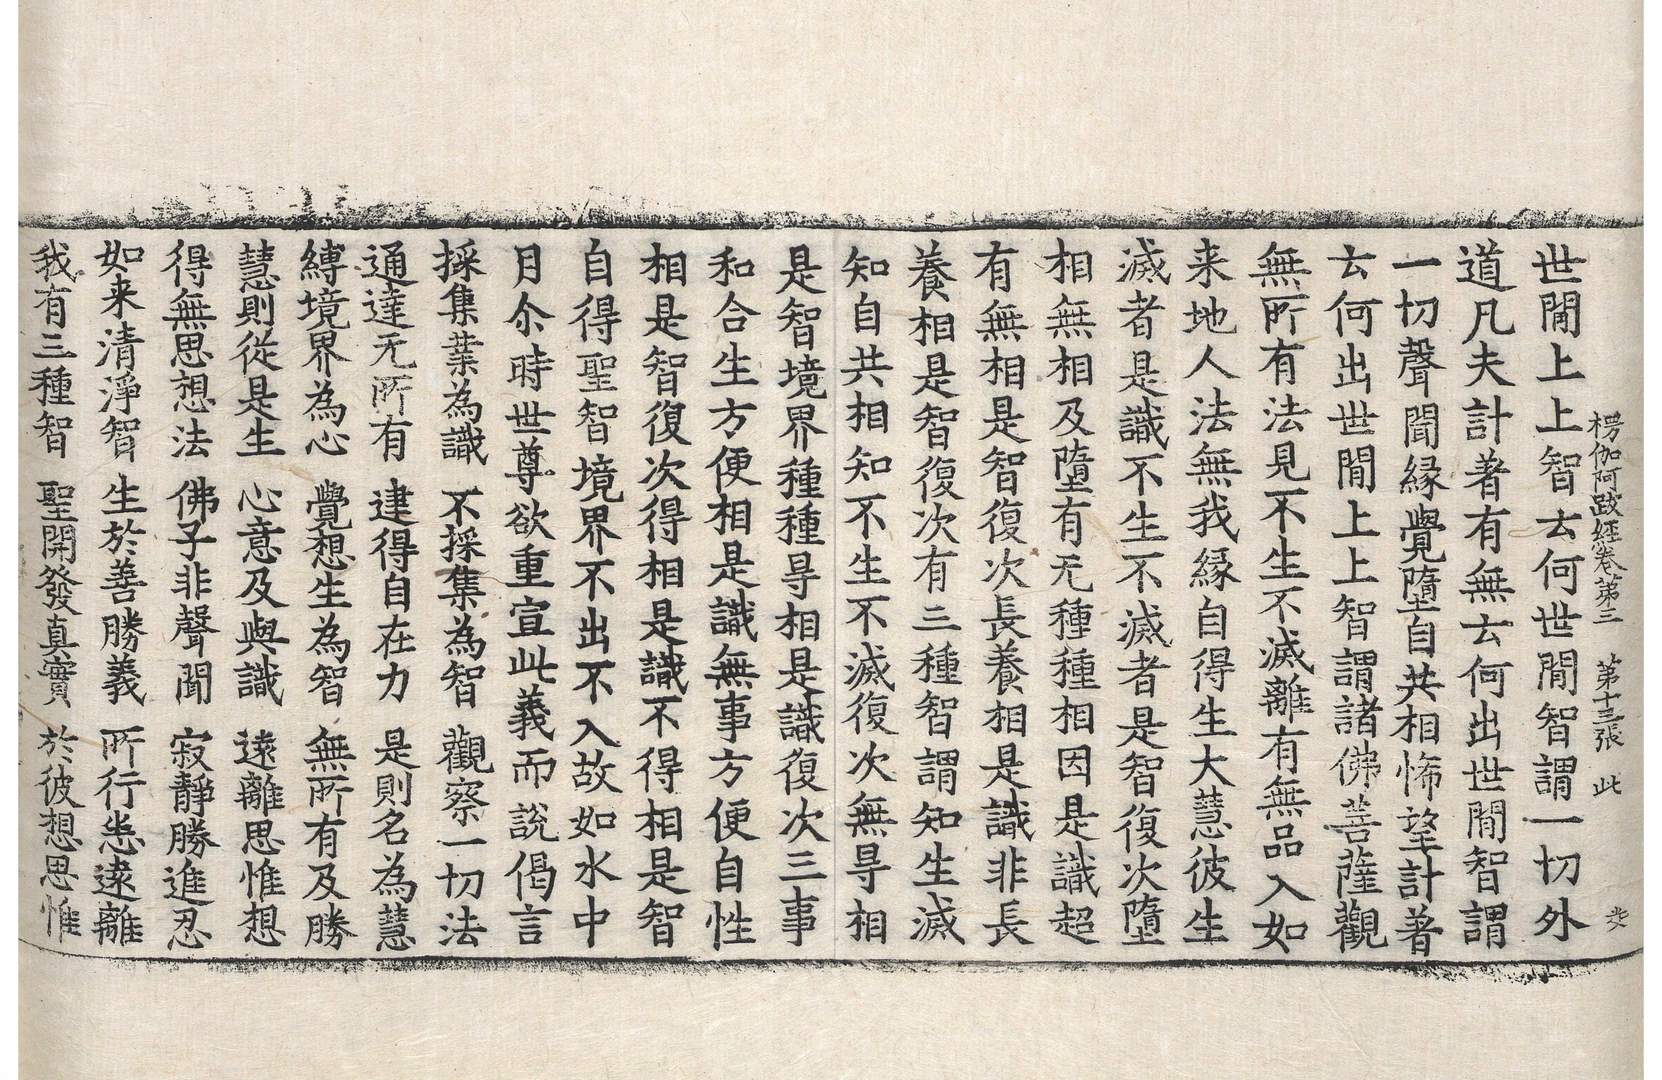 楞伽阿跋經卷第三 第十三張 此
世間上上智云何世間智謂一切外
道凡夫計著有無云何出世間智謂
一切聲聞緣覺墮自共相悕望計著
云何出世間上上智謂諸佛菩薩觀
無所有法見不生不滅離有無品入如
来地人法無我縁自得生大慧彼生
滅者是識不生不滅者是智復次墮
相無相及墮有无種種相因是識超
有無相是智復次長養相是識非長
養相是智復次有三種智謂知生滅
知自共相知不生不滅復次無㝵相
是智境界種種㝵相是識復次三事
和合生方便相是識無事方便自性
相是智復次得相是識不得相是智
自得聖智境界不出不入故如水中
月尒時世尊欲重宣此義而說偈言
採集業為識 不採集為智 觀察一切法
通達无所有 逮得自在力 是則名為慧
縛境界為心 覺想生為智 無所有及勝
慧則從是生 心意及與識 遠離思惟想
得無思想法 佛子非聲聞 寂靜勝進忍
如来清淨智 生於善勝義 所行悉遠離
我有三種智 聖開發真實 於彼想思惟